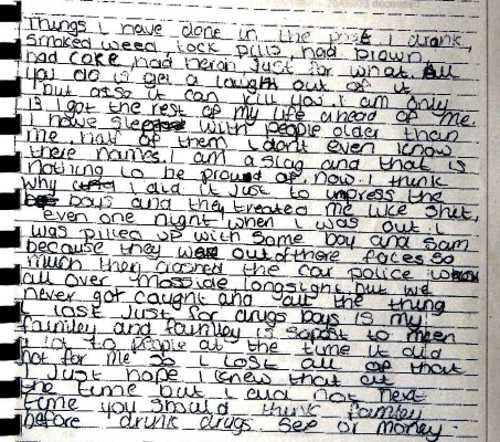 Things i have done in the past i drank,
smoked weed, tock pills, had brown
had coke, had heron, just for what. All
you do is get a laugh out of it
but alse it can kill you. I am only
13 I got the rest of my life ahead of me.
I have sleep with people older than
me half of them i dont even know
there names. I am a slag and that is
nothing to be proud of. Now i think
why i did it just to impress the
boys and they treated me like shit,
even one night when I was out. I
was pilled up with some boy and sam
because they were out of there faces so
much they crashed the car police
all over mosside longsight but we
never got caught and all the thing
I lost just for drugs boys is my
faimley and faimley is sopost to meen
a lot to people at the time it did
not for me so i lost all of that
I just hope i knew that at
the time but i did not next
time you should think faimley
before drunk drugs sex or money.